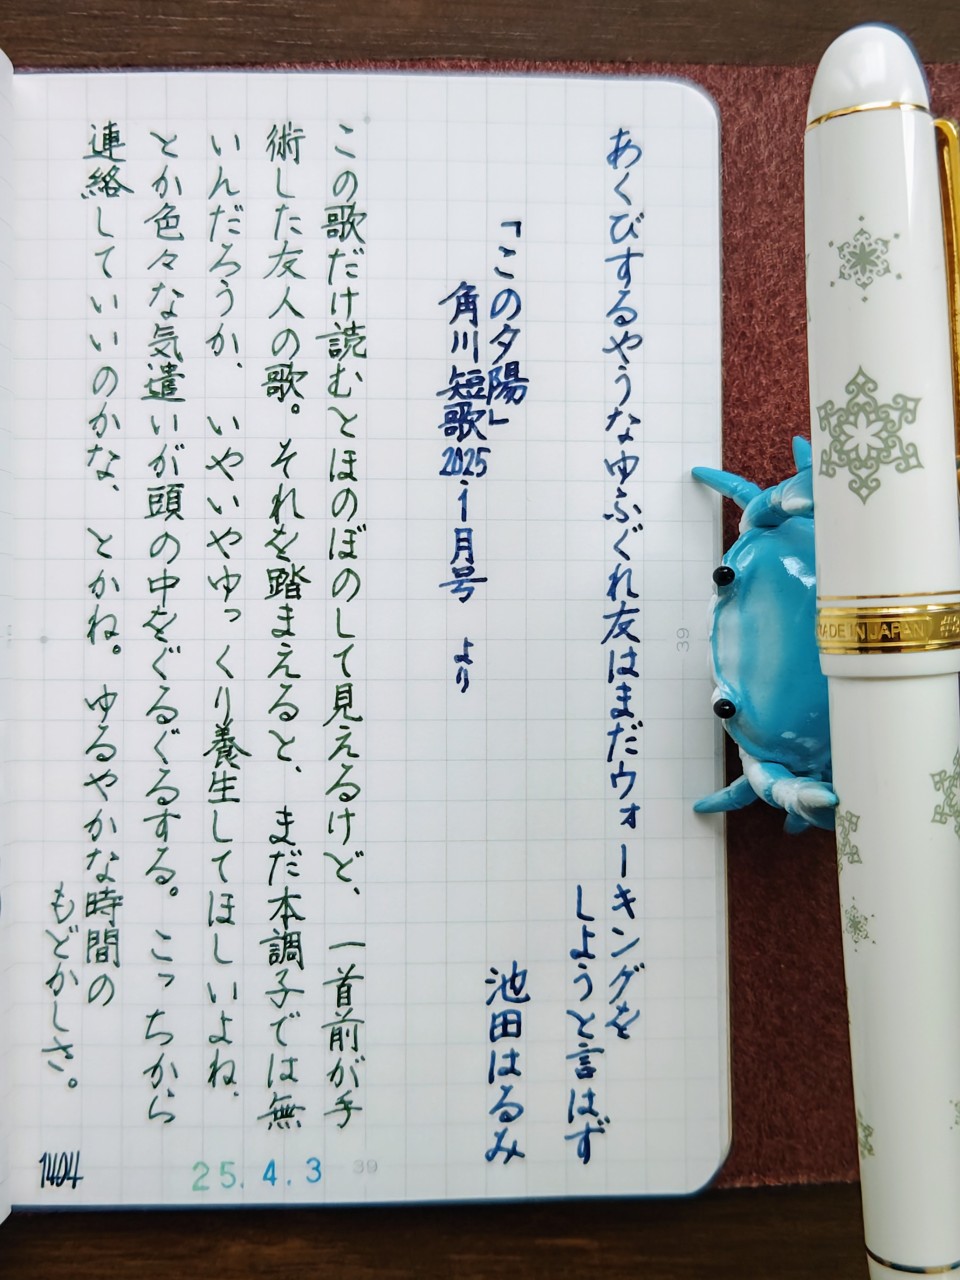 あくびするやうなゆふぐれ友はまだウォーキングを
しようと言はず
「この夕陽」
池田はるみ
角川短歌2025.1月号 より
この歌だけ読むとほのぼのして見えるけど、一首前が手
術した友人の歌。それを踏まえると、まだ本調子では無
いんだろうか、いやいやゆっくり養生してほしいよね、
とか色々な気遣いが頭の中をぐるぐるする。こっちから
連絡していいのかな、とかね。ゆるやかな時間の
もどかしさ。
1404
25.4.3
39
39
MADE IN JAPAN